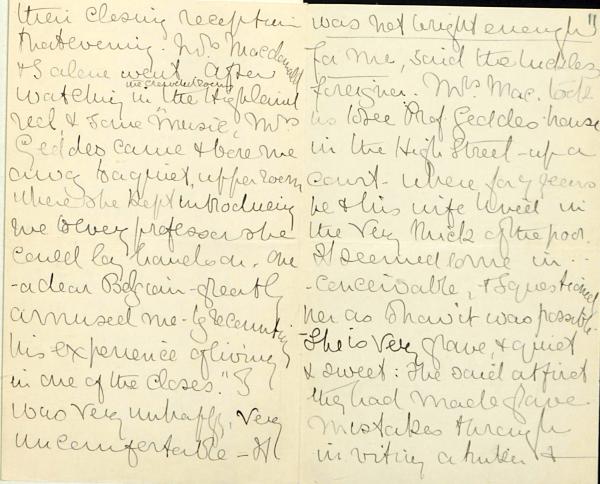 their closing reception
that evening. Mrs Macdonald
& Salene went. After
in the crowded room
watching in the Highland
reel, & some music, Mrs
Geddes came & bore me
away to a quiet, upper room
where she kept introducing
me to every professor she
could lay hands on. One
- a dear Belgain - greatly
amused me - by recounting
his experience of living
in one of the closes. "I
was very unhappy, very
uncomfortable - It
was not bright enough"
for me, said the luckless
foreigner. Mrs Mac. took
us to see Prof. Geddes' house
in the High Street - up a
court - where for 7 years
he & his wife lived in
the very thick of the poor.
It seemed to me in -
- conceivable, & I questioned
her as to how it was possible.
She is very grave, & quiet
& sweet: She said at first
they had made grave
mistakes through
inviting a tinker &